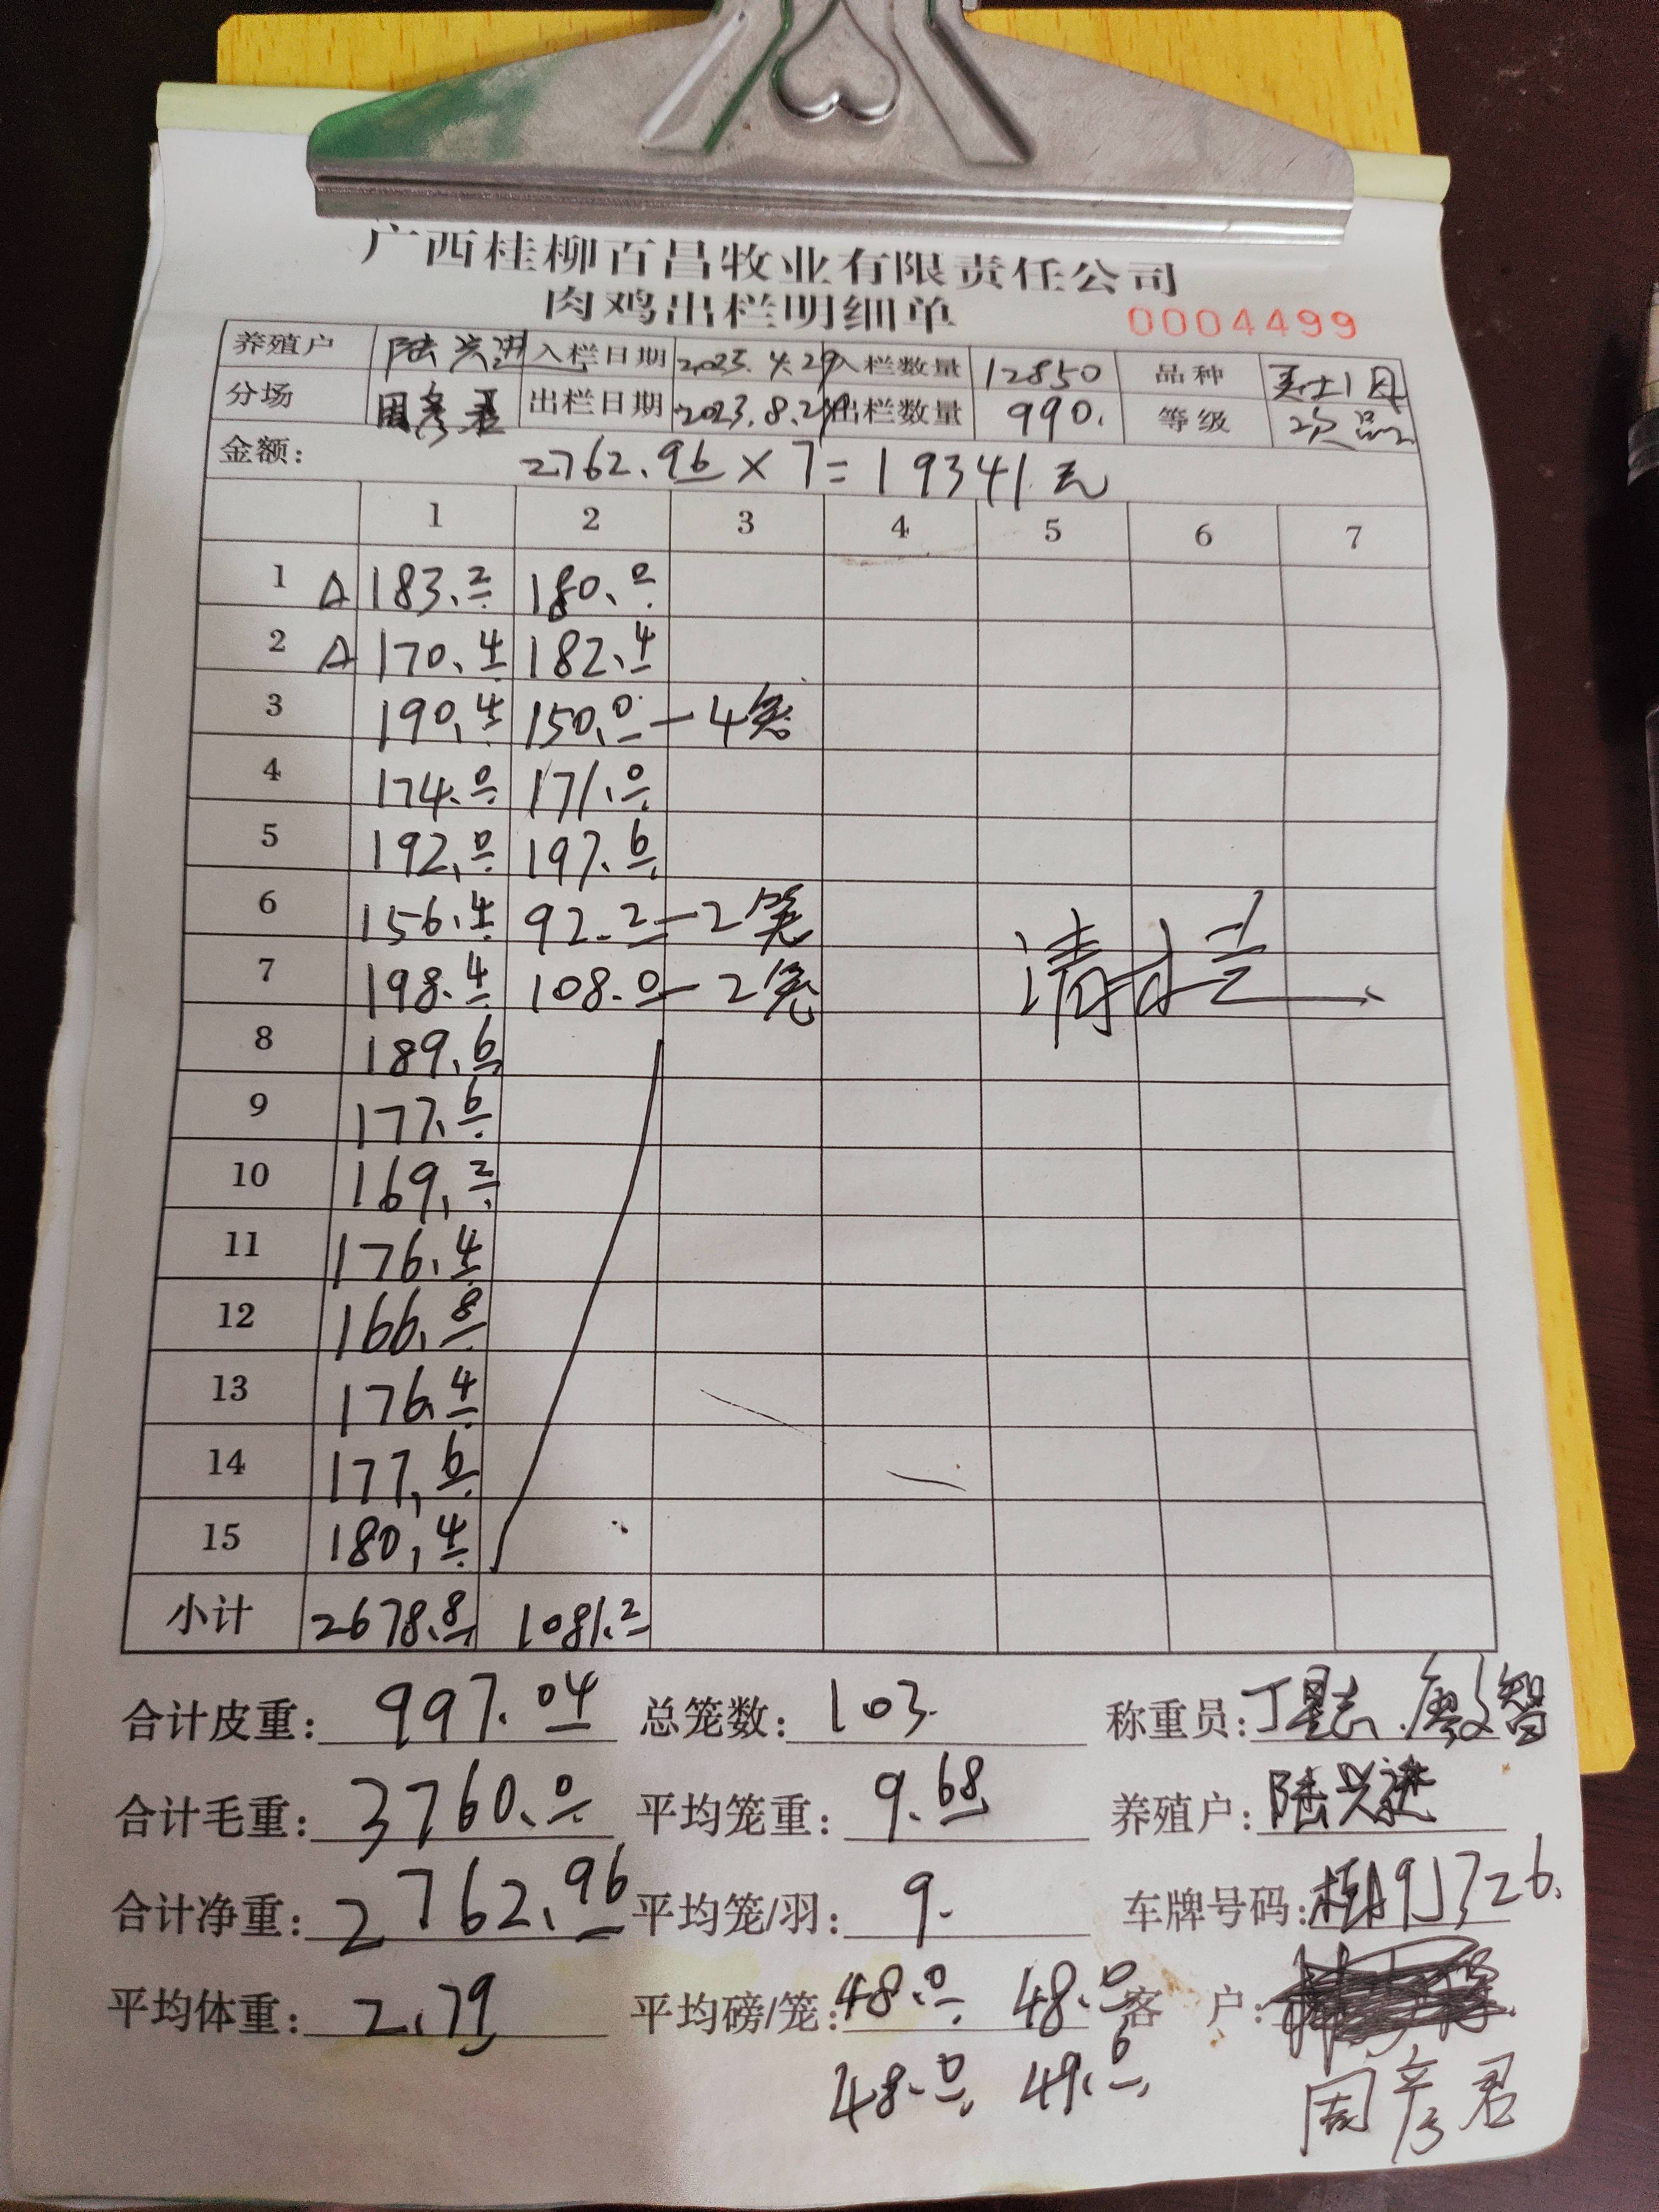 广西桂柳百昌牧业有限责任公司
肉鸡出栏明细单 0004499
养殖户 陆兴进 入栏日期 2023.4.29 入栏数量 12850 品种
分场 周彦君 出栏日期 2023.8.29 出栏数量 990. 等级 次品
金额: 2762.96×7=19341.元
1 2 3 4 5 6 7
1 A 183.2 180.0
2 A 170.4 182.4
3 190.4 150.0—4笼
4 174.0 171.0
5 192.0 197.6
6 156.4 92.2—2笼
7 198.4 108.0—2笼
清栏
8 189.6
9 177.6
10 169.2
11 176.4
12 166.8
13 176.4
14 177.6
15 180.4
小计 2678.8 1081.2
合计皮重: 997.04 总笼数: 103. 称重员:
合计毛重: 3760.0 平均笼重: 9.68 养殖户: 陆兴进
合计净重: 2762.96 平均笼/羽: 9. 车牌号码:
平均体重: 2.79 平均磅/笼: 48.0 48.0 客 户:
48.0 49.6 周彦君